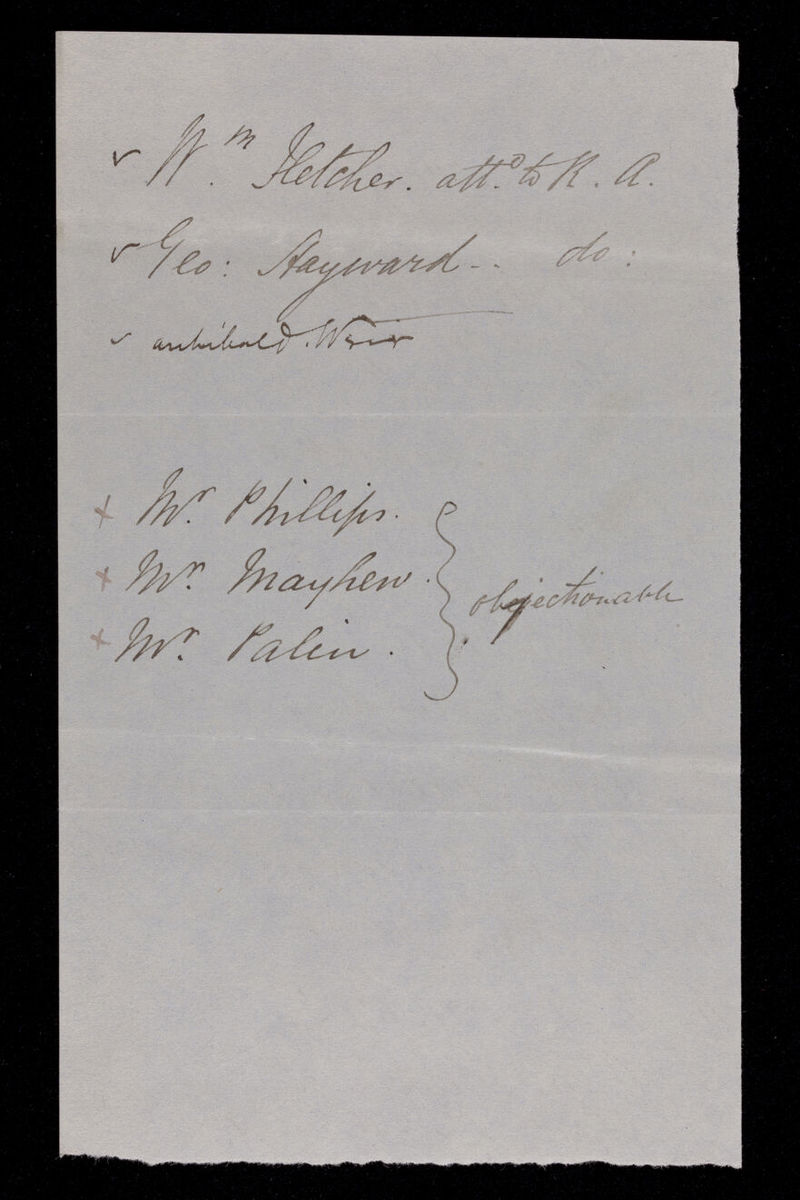 ✓ Wm. Fletcher. attd. to R. A.
✓ Geo: Hayward -- do:
✓ archibald. Weir
x Mr. Phillips.
x Mr. Mayhew.
x Mr. Palin.
objectionable